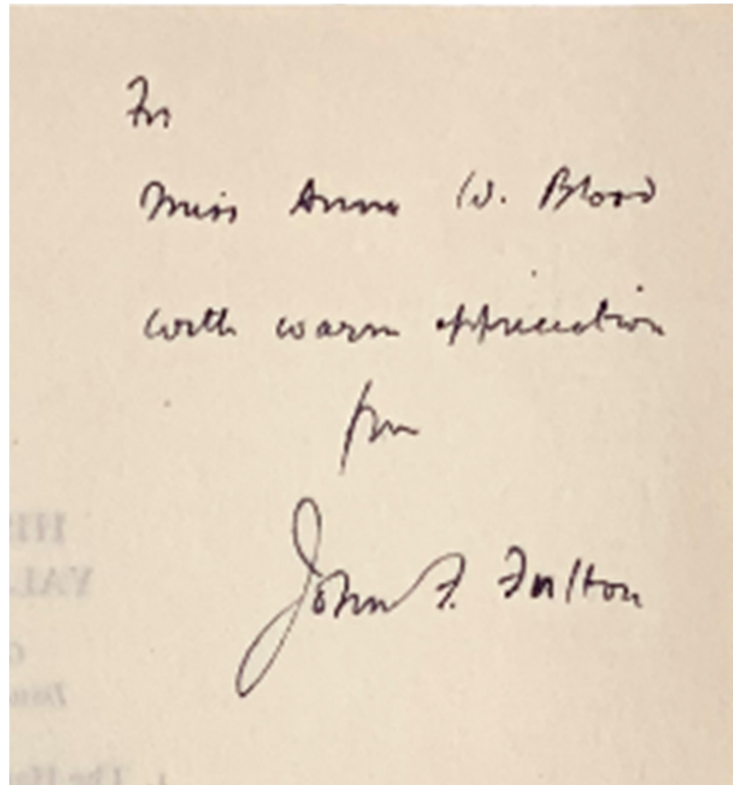 For
Miss Anna W. Blood
with warm appreciation
from
John F. Fulton